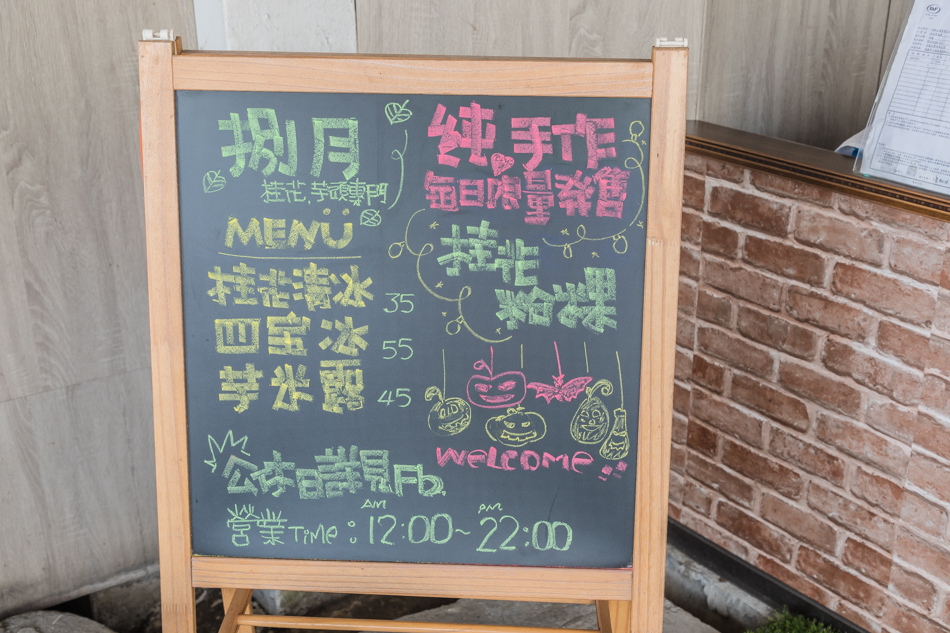 捌月
桂花.芋頭專門
MENÜ
桂花清冰 35
四宝冰 55
芋米露 45
純手作
每日限量発售
桂花
粉粿
WELCOME
公休日詳見Fb.
營業Time: AM 12:00~ PM 22:00